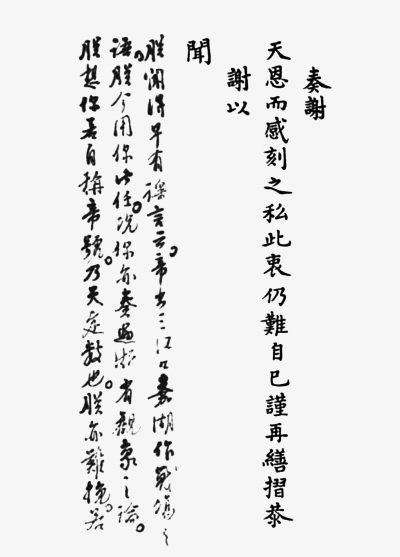 奏謝
天恩而感刻之私此衷仍難自已謹再繕摺恭
謝以
聞
朕聞得早有謠言云。帝出三江口嘉湖作戰場之
語。朕今用你此任。況你亦奏過浙省觀象之論。
朕想你若自稱帝號。乃天定數也。朕亦難挽。若